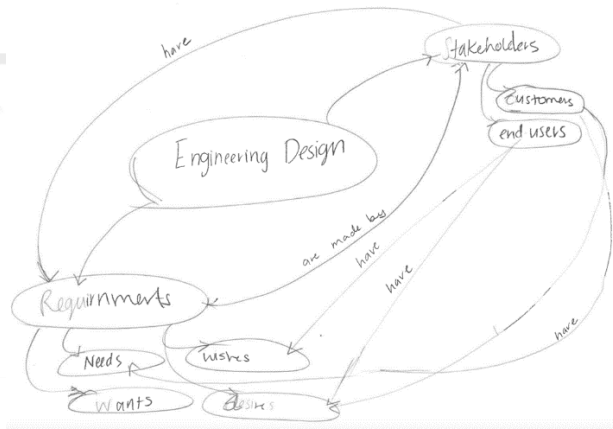 have
Stakeholders
Customers
end users
Engineering Design
are made by
have
have
have
Requirnments
Needs
wishes
Wants
desires